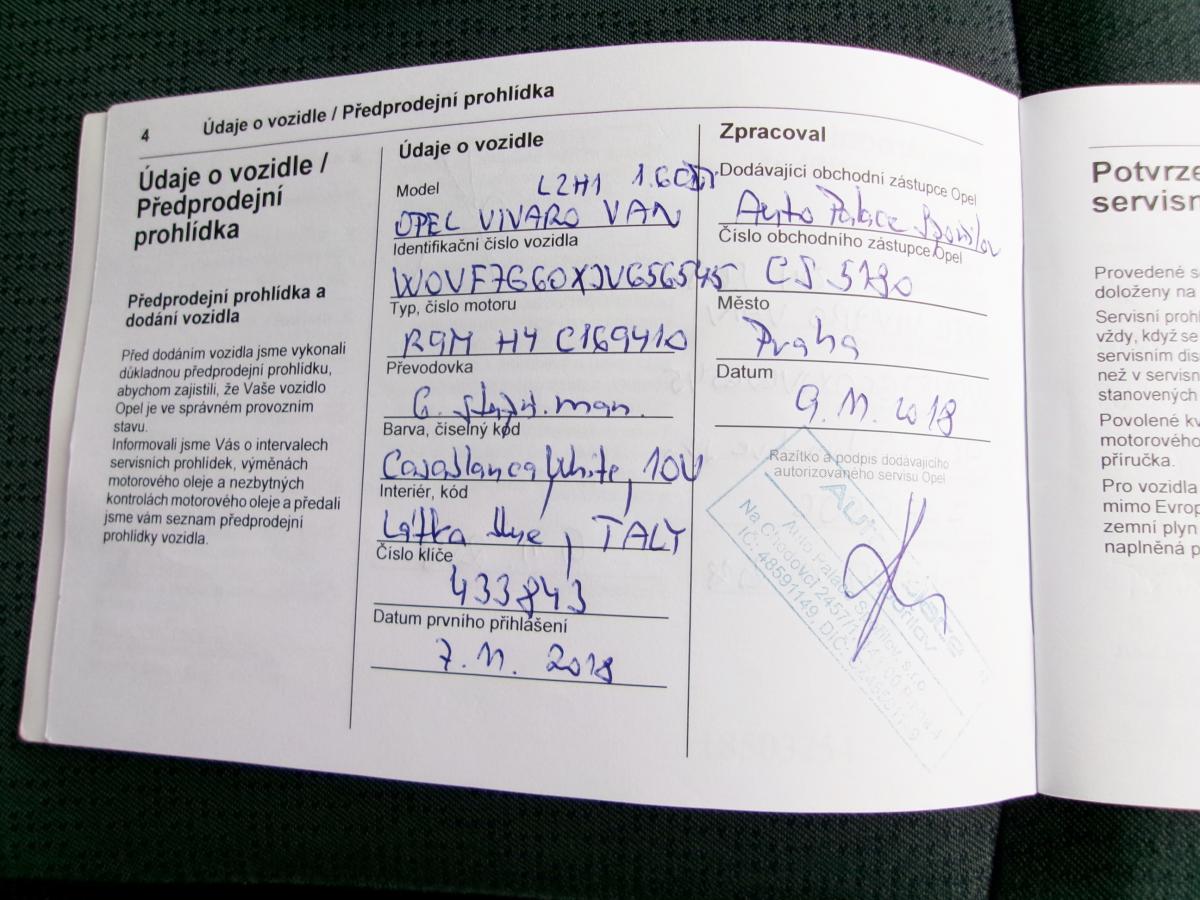 4 Údaje o vozidle / Předprodejní prohlídka
Údaje o vozidle /
Předprodejní
prohlídka
Předprodejní prohlídka a
dodání vozidla
Před dodáním vozidla jsme vykonali
důkladnou předprodejní prohlídku,
abychom zajistili, že Vaše vozidlo
Opel je ve správném provozním
stavu.
Informovali jsme Vás o intervalech
servisních prohlídek, výměnách
motorového oleje a nezbytných
kontrolách motorového oleje a předali
jsme vám seznam předprodejní
prohlídky vozidla.
Údaje o vozidle
Model
L2H1
OPEL VIVARO VAN
Identifikační číslo vozidla
W0VF7G60XJV656545
Typ, číslo motoru
R9M H4 C169410
Převodovka
6. man.
Barva, číselný kód
Casablanca White, 10U
Interiér, kód
Látka, TALY
Číslo klíče
433843
Datum prvního přihlášení
7. 11. 2018
Zpracoval
Dodávající obchodní zástupce Opel
Auto Palace Spořilov
Číslo obchodního zástupce Opel
CS 5780
Město
Praha
Datum
9. 11. 2018
Razítko a podpis dodávajícího
autorizovaného servisu Opel
Auto Palace Spořilov, s.r.o
Na Chodovci 2457/1
IČ: 48591149, DIČ:
Potvrze
servisn
Provedené s
doloženy na
Servisní prohl
vždy, když se
servisním dis
než v servisn
stanovených
Povolené kv
motorového
příručka.
Pro vozidla
mimo Evrop
zemní plyn
naplněná p